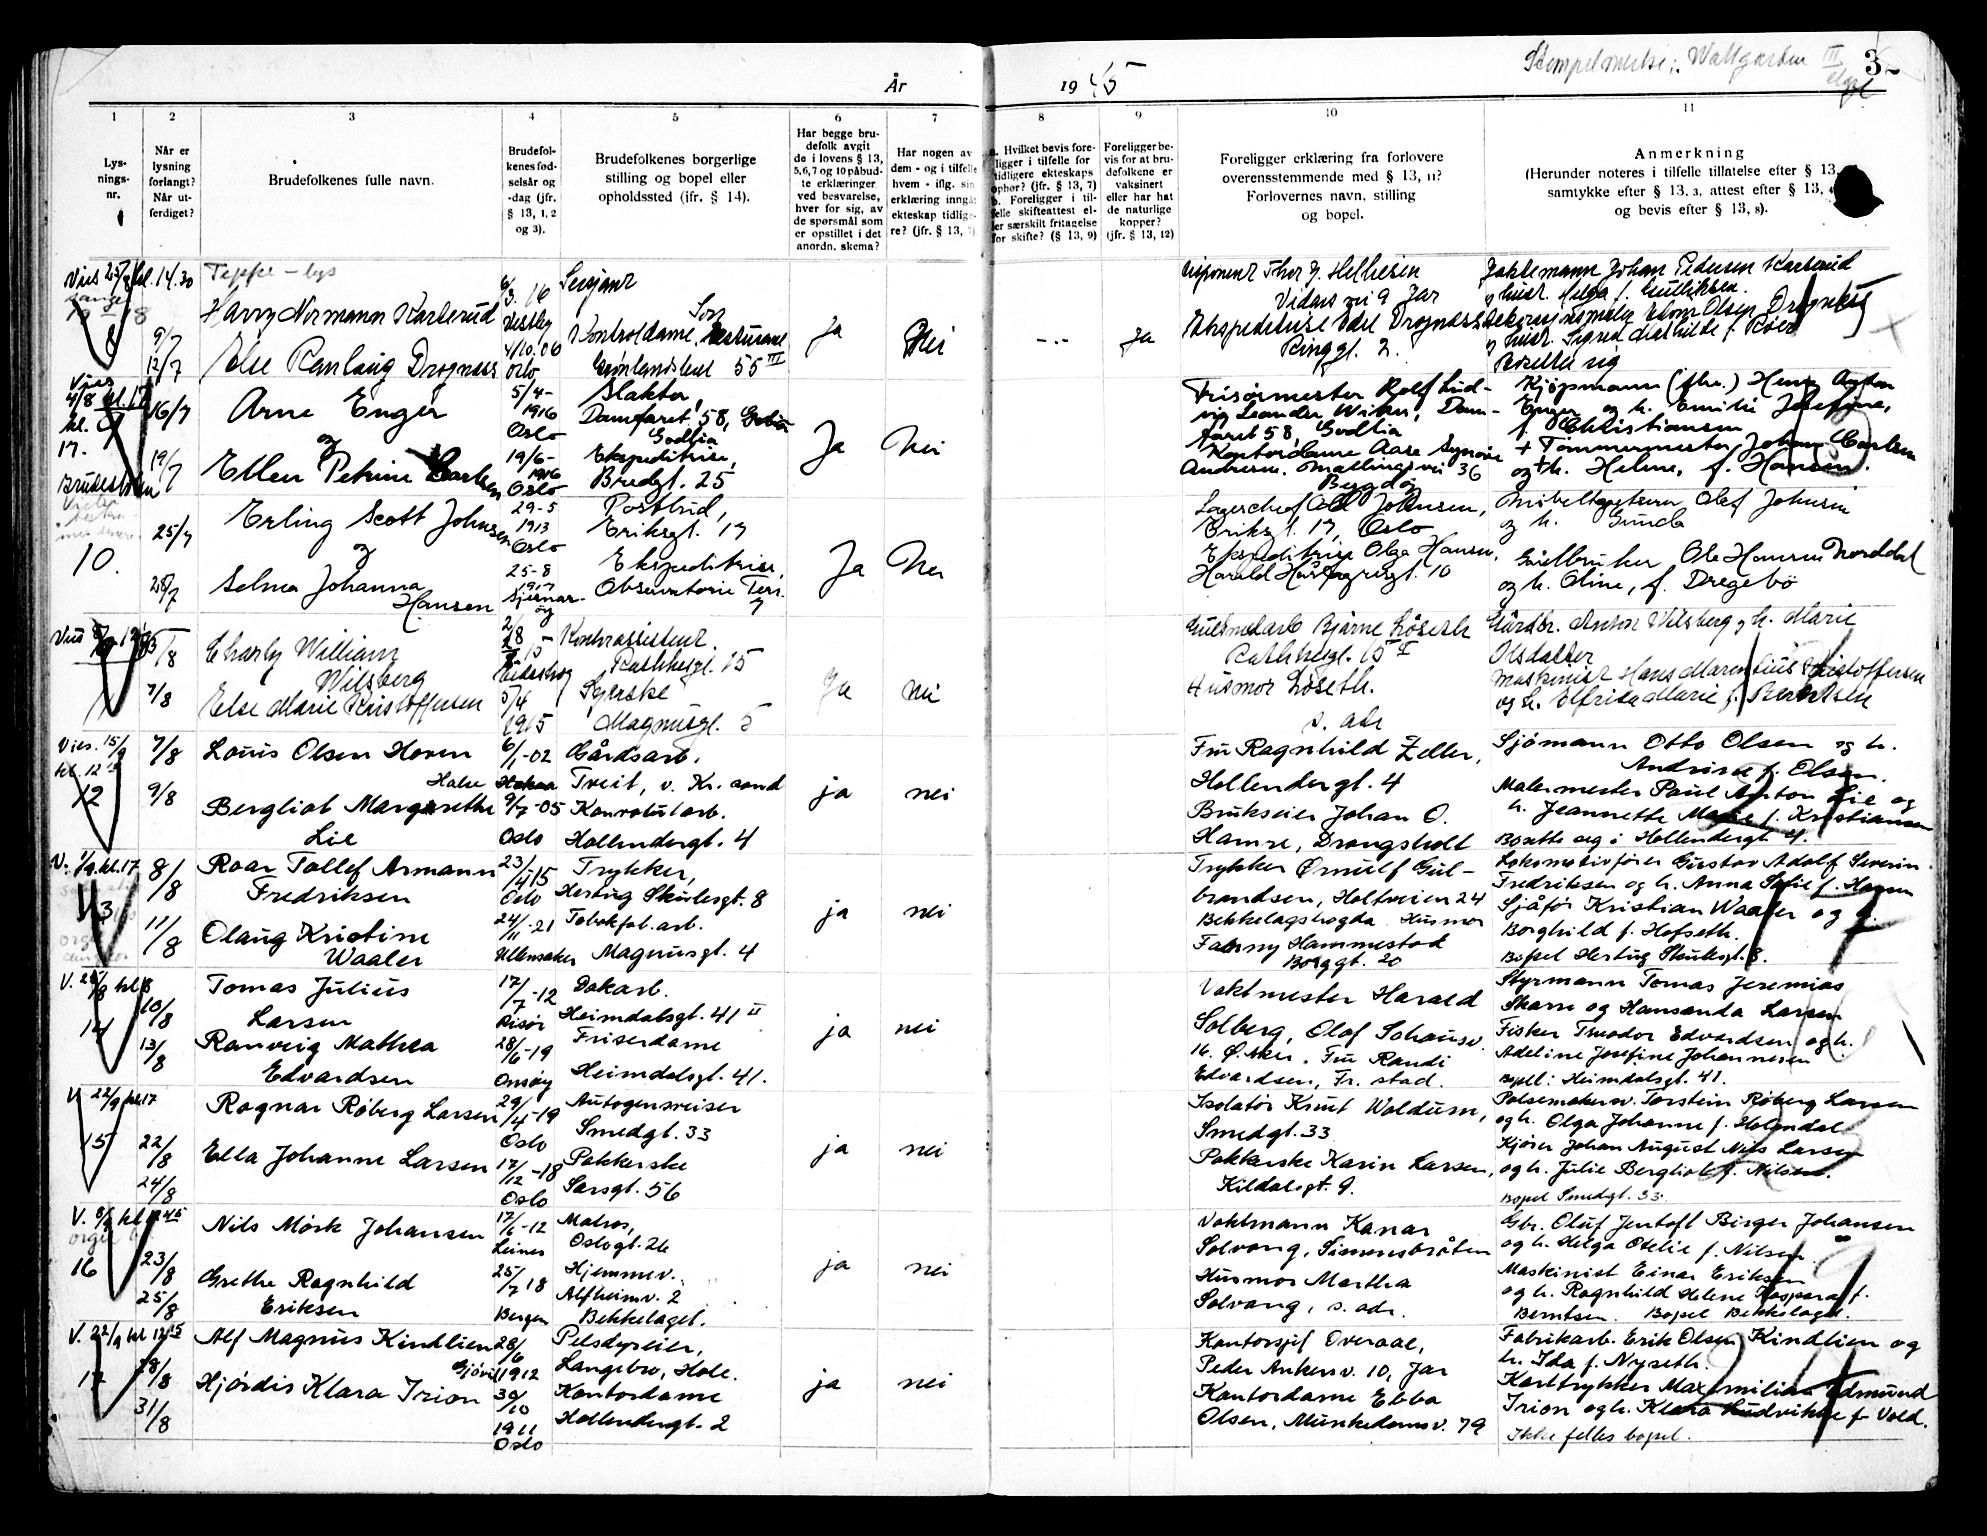 Stempelmerke:
3
År
19 45
1
2
3
4
5
6
7
8
9
10
11
Lys-
nings-
nr.
Når er
lysning
forlangt?
Når ut-
ferdiget?
Brudefolkenes fulle navn.
Brudefol-
kenes fød-
selsår og
-dag (jfr.
§ 13, 1, 2
og 3).
Brudefolkenes borgerlige
stilling og bopel eller
opholdssted (jfr. § 14).
Har begge bru-
defolk avgit
de i lovens § 13,
5,6,7 og 10 påbud-
te erklæringer
ved besvarelse,
hver for sig, av
de spørsmål som
er opstillet i det
anordn. skema?
Har nogen av
dem - og i tilfelle
hvem - iflg. sin
erklæring inngåt
ekteskap tidlige-
re? (jfr. § 13,
Hvilket bevis fore-
ligger i tilfelle for
tidligere ekteskaps
ophør? (jfr. § 13, 7)
b. Foreligger i til-
felle skifteattest el-
ler særskilt fritagelse
for skifte? (§ 13, 9)
Foreligger be-
vis for at bru-
defolkene er
vaksinert
eller har hat
de naturlige
kopper?
(jfr. § 13, 12)
Foreligger erklæring fra forlovere
overensstemmende med § 13, 11?
Forlovernes navn, stilling
og bopel.
Anmerkning
(Herunder noteres i tilfelle tillatelse efter § 13,
samtykke efter § 13, 3, attest efter § 13,
og bevis efter § 13, 8).
Vies 25/8 kl. 14.30
8
9/7
12/7
Harry Normann Karterud
Else Ranlaug Drognæss
3. 16
Vestby
4/10.06
Oslo
Sersjant
Son
Kontroldame,
Grønlandsleret 55 III
Ja
Nei
Ja
Disponent Thor J. Hellesen
Vidars vei 9 Jar
Ekspeditrise Edel Drognæss
Ringgt. 2.
Vaktmann Johan Pedersen Karterud
og hust. Helga f. Gulliksen.
og hust. Sigrid Mathilde f. Røer
Bosette sig
Vies
4/8 kl. 17
9
16/7
19/7
Arne Enger
og
Ellen Petrine Carlsen
5/4-
1916
Oslo
19/6-
1916
Oslo
Slakter,
Damfaret 58,
Godlia
Ekspeditrise,
Bredgt. 25
Ja
Nei
Frisørmester Rolf Lud-
vig Leander Wiker, Dam-
faret 58, Godlia
Kontordame Aase Synøve
Andresen, Mallingsvei 36
Bergdøj
Kjøpmann (fhv.) Henr. Anton
Enger og h. Emilie Josefine,
f. Christiansen
+ Tømmermester Johan Carlsen
og +h. Helene, f. Hansen.
10.
25/7
28/7
Erling Scott Johnsen
og
Selma Johanna
Hansen
29-5
1913
Oslo
25-8
1917
Postbud,
Eriksgt. 17
Ekspeditrise,
Observatorie Terr.
7
Ja
Nei
Lagerchef Odd Johnsen,
Eriksgt. 17, Oslo
Ekspeditrise Olga Hansen,
Harald Hårfagresgt. 10
Møbeltapetserer Olaf Johnsen
og h. Gunda
Gårdbruker Ole Hansen Norddal
og h. Oline, f. Dregebø
11
7/8
Charly William
Wilsberg
Else Marie Kristoffersen
Eidskog
5/4
1915
Kontorassistent
Rathkesgt. 15
Syerske
Magnusgt. 5
Ja
nei
Gullsmedarb Bjarne Løseth
Rathkesgt. 15 II
Husmor Løseth.
s. adr
Gårdbr. Anton Wilsberg og h. Marie
Olsdatter
Maskinist Hans Marentius Kristoffersen
og h. Elfrida Marie f. Berntsen
Vies. 15/9
kl. 12
12
7/8
9/8
Louis Olsen Hoven
Bergliot Margrethe
Lie
6/1-02
9/7-05
Oslo
Gårdsarb.
Tveit, v. Kr. sand
Konvoluttarb.
Hollendergt. 4
ja
nei
Fru Ragnhild Zeller,
Hollendergt. 4
Brukseier Johan O.
Hamre, Drangsholt
Sjømann Otto Olsen og h.
Andrine f. Olsen.
Malermester Paul Anton Lie og
h. Jeannette Marie f. Kristiansen
Bosette seg i Hollendergt. 4.
V. 1/9 kl. 17
13
8/8
11/8
Roar Tollef Armann
Fredriksen
Olaug Kristine
Waaler
23/4 15
Oslo
24/11-21
Ullensaker
Trykker,
Hertug Skulesgt. 8
Tobakfab.arb.
Magnusgt. 4
ja
nei
Trykker Ørnulf Gul-
brandsen, Holtveien 24
Bekkelagshøgda. Husmor
Fanny Hammestad
Borggt. 20
Lokomotivfører Gustav Adolf Severin
Fredriksen og h. Anna Sofie f. Hansen
Sjåfør Kristian Waaler og h.
Borghild f. Hofseth.
Bopel Hertug Skulesgt. 8.
14
10/8
13/8
Tomas Julius
Larsen
Ranveig Mathea
Edvardsen
17/7-12
Risør
28/6-19
Onsøy
Dokarb.
Heimdalsgt. 41 II
Friserdame
Heimdalsgt. 41.
ja
nei
Vaktmester Harald
Solberg, Olaf Schousv.
16. Ø. Aker. Fru Randi
Edvardsen, Fr. stad.
Styrmann Tomas Jeremias
Skarre og Hansanda Larsen
Fisker Teodor Edvardsen og h.
Adeline Josefine Johannesen
Bopel: Heimdalsgt. 41.
V. 22/9 kl 17
15
22/8
24/8
Ragnar Røberg Larsen
Ella Johanne Larsen
29/4-19
Oslo
17/12-18
Oslo
Autogensveiser
Smedgt. 33
Pakkerske
Sarsgt. 56
ja
nei
Isolatør Knut Woldum,
Smedgt. 33
Pakkerske Karin Larsen,
Kildalsgt. 9.
Pølsemakersv. Torstein Røberg Larsen
og h. Olga Johanne f. Holmdal
Kjører Johan August Nils Larsen
og h. Julie Bergliot f. Nilsen.
Bopel Smedgt. 33.
16
23/8
25/8
Nils Mørk Johansen
Grethe Ragnhild
Eriksen
17/6-12
25/7 18
Bergen
Matros,
Oslogt. 26
Hjemmev.
Alfheimv. 2
Bekkelaget.
ja
nei
Vaktmann Kanar
Solvang, Simensbråten
Husmor Martha
Solvang, s. adr.
Gbr. Oluf Jentoft Birger Johansen
og h. Helga Otelie f. Nilsen
Maskinist Einar Eriksen
og h. Ragnhild Helene Kaspara f.
Berntsen. Bopel Bekkelaget.
V. 22/9 kl 12 15
17
28/8
31/8
Alf Magnus Kindlien
Hjørdis Klara Irion
28/6
Gjøvik 1912
30/10
1911
Oslo
Pelsdyreier,
Langebro, Hole.
Kontordame
Hollendergt. 2
ja
nei
Kontorsjef Overaae,
Peder Ankers v. 10, Jar
Kontordame Ebba
Olsen, Munkedamsv. 79
Fabrikarb. Erik Olsen Kindlien og
h. Ida f. Nyseth.
Karttrykker Maximilian Edmund
Irion og h. Klara Ludvikke f. Vold.
Ikke felles bopel.